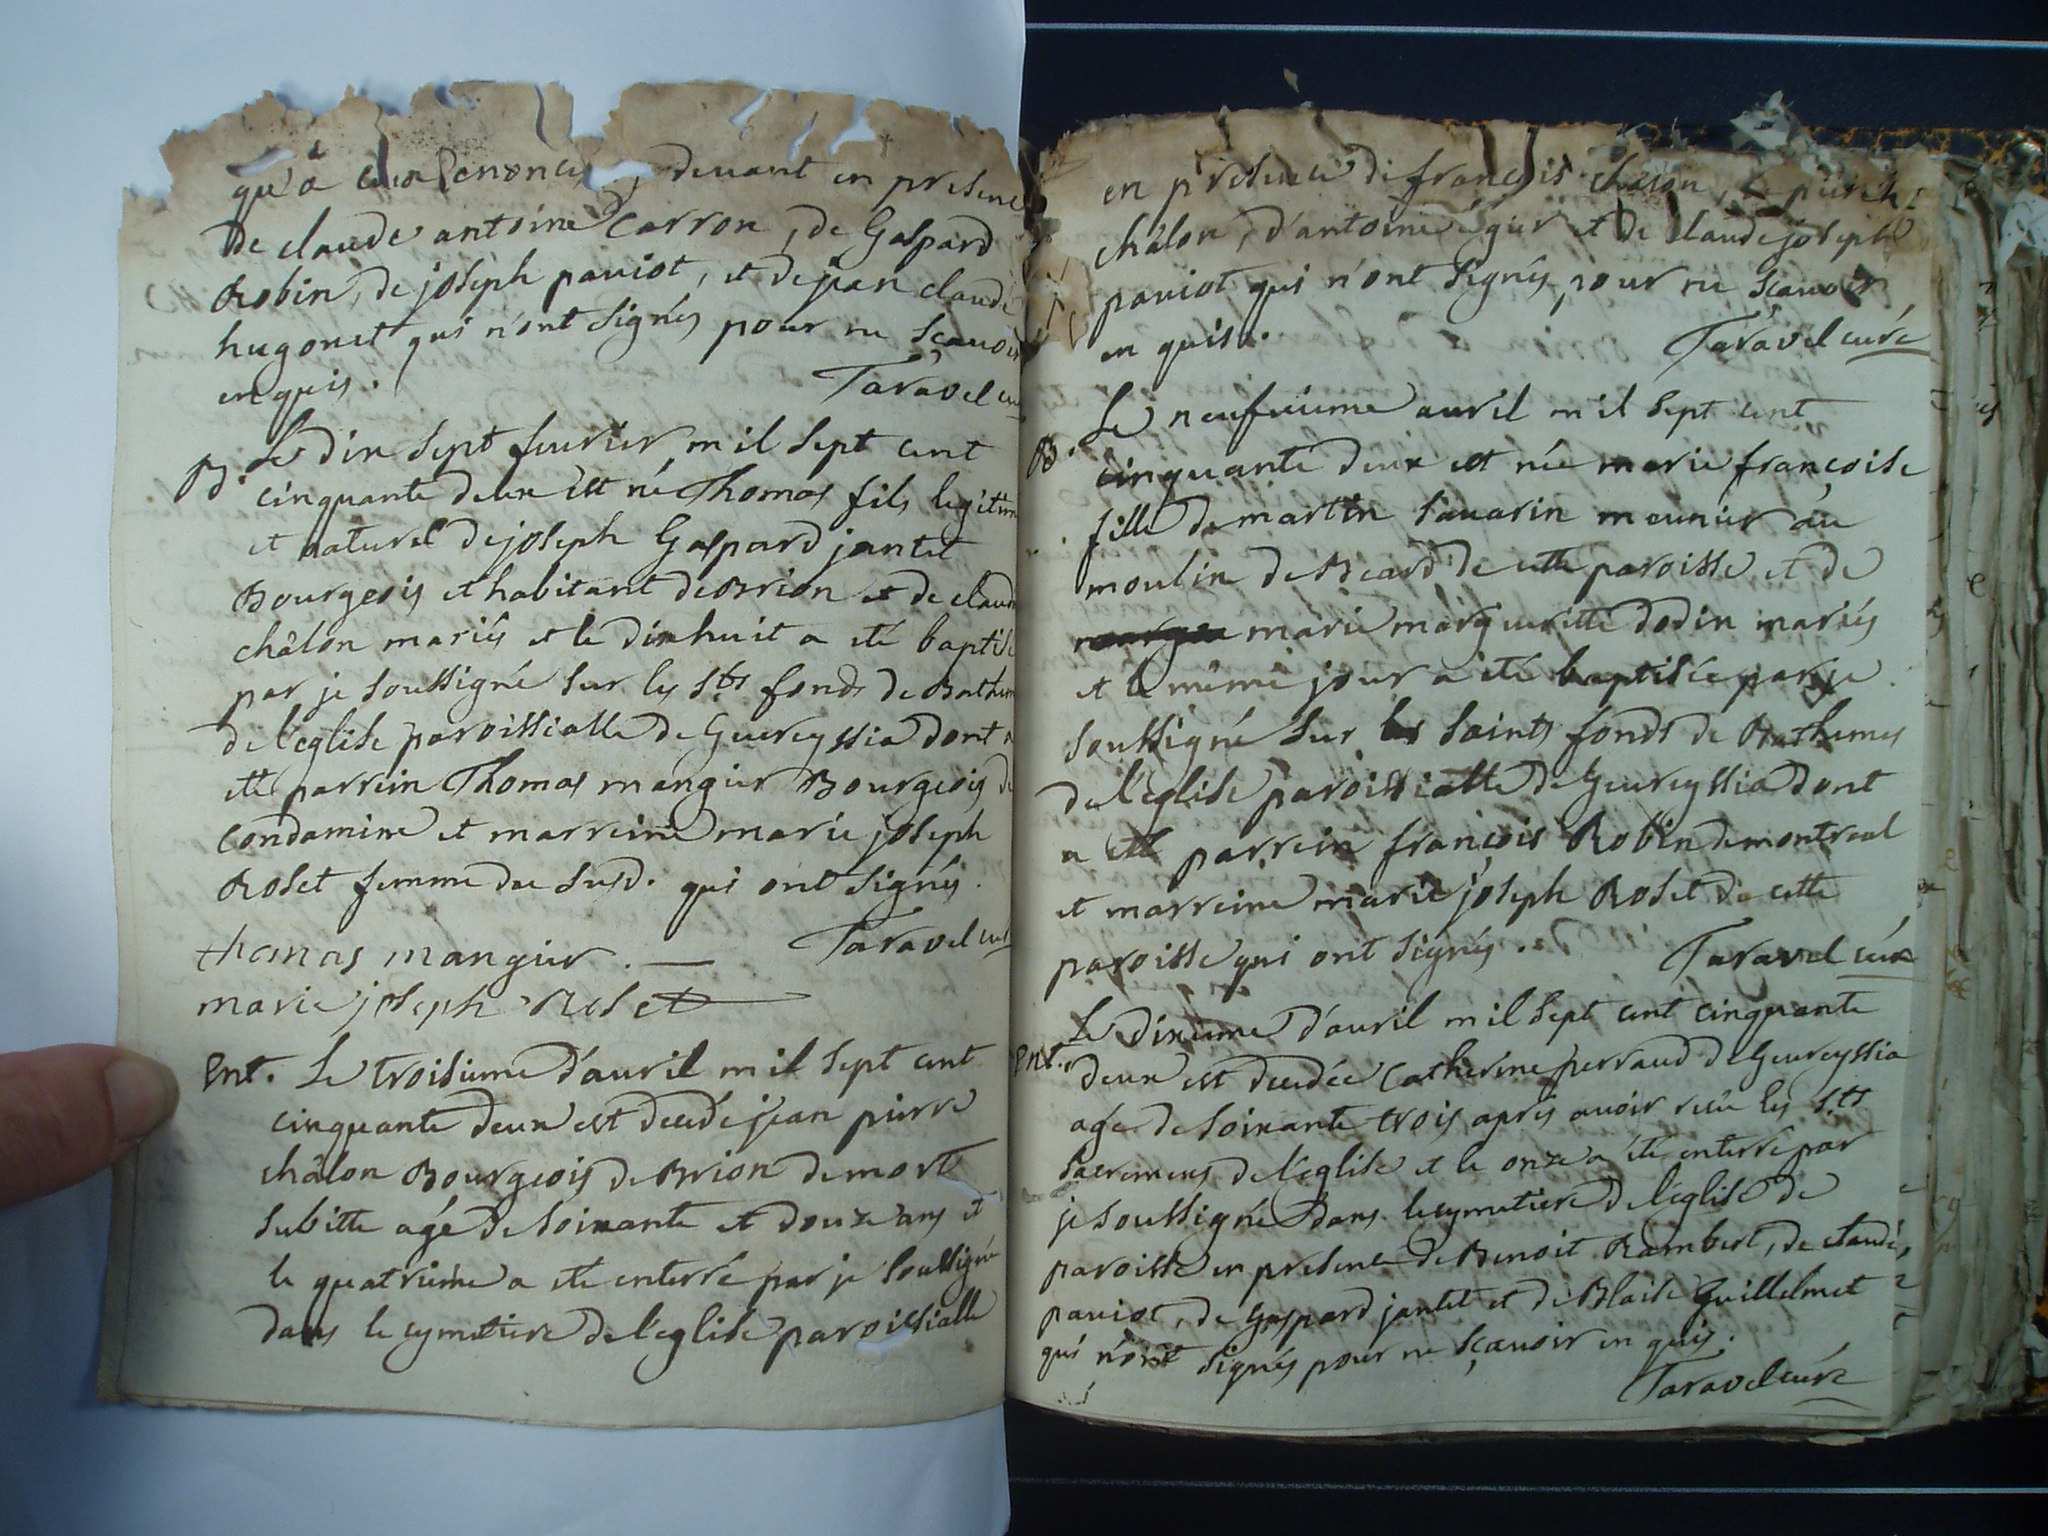 qu'à denoncés, devant en presence
de claude antoine Carron, de Gaspard
Robin, de joseph paviot, et de jean claude
hugonet qui n'ont signés pour ne sçavoir
en quis.
Taravel curé
B. Le dix sept fevrier mil sept cent
cinquante deux est né Thomas fils legitime
et naturel de joseph Gaspard jantet
Bourgeois et habitant de Brion et de claude
châlon mariés et le dixhuit a eté baptisé
par je soussigné sur les Sts fonds de Bathemes
de l'eglise paroissialle de Geureyssia dont a
eté parrein Thomas mangier Bourgeois de
Condamine et marreine marie joseph
Roset femme du susd. qui ont signés.
thomas mangier.
Taravel curé
marie joseph Roset
Ent. Le troisieme d'avril mil sept cent
cinquante deux est decedé jean pierre
châlon Bourgeois de Brion de mort
subitte agé de soixante et douze ans et
le quatrieme a eté enterré par je soussigné
dans le cymetiere de l'eglise paroissialle
en présence de françois châlon, de pierre
châlon, d'antoine égier et de claude joseph
paviot qui n'ont signés pour ne sçavoir
en quis.
Taravel curé
B. Le neufvieme avril mil sept cent
cinquante deux est née marie françoise
fille de martin savarin meunier au
moulin de Béard de cette paroisse et de
marie margueritte dodin mariés
et le même jour a eté baptisée par je
soussigné sur les saints fonds de Bathemes
de l'eglise paroissialle de Geureyssia dont
a eté parrein françois Robin de montreal
et marreine marie joseph Roset de cette
paroisse qui ont signés.
Taravel curé
Ent. Le dixieme d'avril mil sept cent cinquante
deux est decedée Catherine perraud de Geureyssia
agé de soixante trois après avoir reçu les Sts
sacremens de l'eglise et le onze a été enterré par
je soussigné dans le cymetiere de l'eglise de
paroisse en presence de Benoit Rambert, de claude
paviot, de Gaspard jantet et de Blaise Guillelmet
qui n'ont signés pour ne sçavoir en quis.
Taravel curé